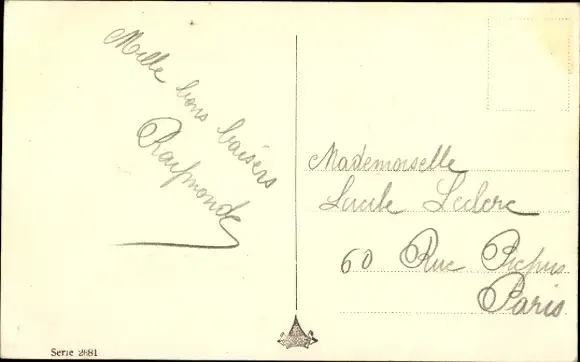 Mille bons baisers
Raymonde
Mademoiselle
Lucile Leclerc
60 Rue Picpus
Paris
Serie 2681